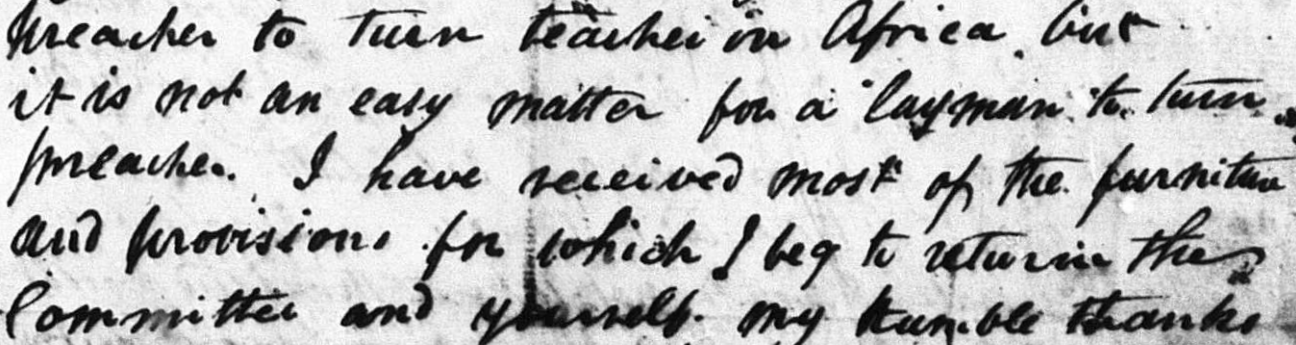 preacher to turn teacher in Africa, but
it is not an easy matter for a layman to turn
preacher. I have received most of the furniture
and provisions for which I beg to return the
Committee and yourself my humble thanks